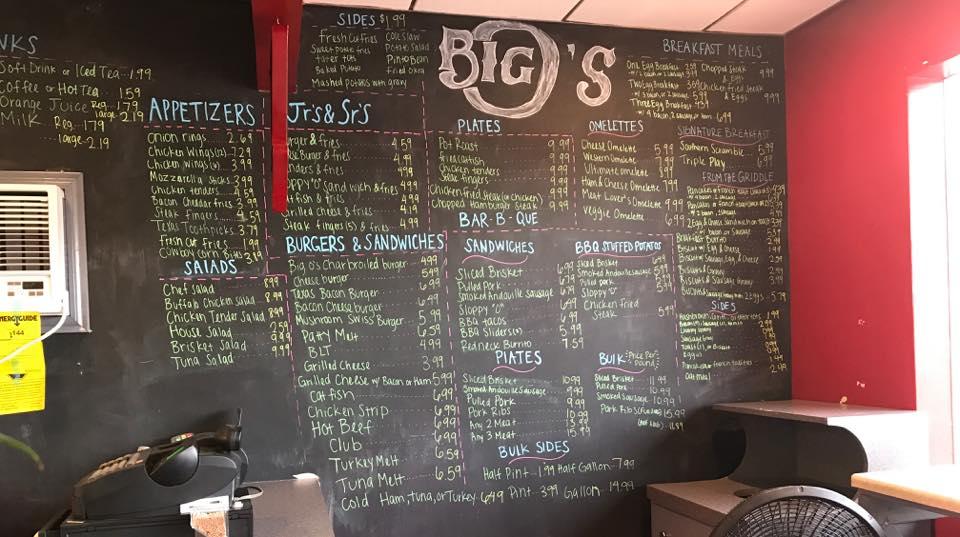 NKS
Soft Drink or Iced Tea 1.99
Coffee or Hot Tea 1.59
Orange Juice Reg. 1.79
large 2.19
Milk Reg 1.79
large 2.19
APPETIZERS
Onion rings 2.69
Chicken Wings 7.29
Chicken Wings 3.99
Mozzarella Sticks 3.99
Chicken tenders 4.59
Bacon Cheddar fries 3.99
Steak fingers 4.59
Texas Toothpicks 3.79
Fresh Cut fries 1.99
Cowboy Corn Bites 3.99
SALADS
Chef Salad 8.99
Buffalo Chicken Salad 8.99
Chicken Tender Salad 8.99
House Salad
Brisket Salad 9.99
Tuna Salad
SIDES $1.99
Fresh Cut Fries Coleslaw
Sweet potato fries Potato Salad
Tater tots Pinto Bean
Baked Potato Fried Okra
Mashed potatos with gravy
BIG O'S
Jr's & Sr's
urger & fries 4.59
Burger & fries 4.99
enders & fries 4.99
oppy "O" Sandwich & fries 4.99
fish & fries 4.99
Grilled Cheese & fries 4.19
Steak fingers & fries 4.99
BURGERS & SANDWICHES
Big O's Charbroiled burger 4.99
Cheese burger 5.49
Texas Bacon Burger 6.99
Bacon Cheese burger 6.49
Mushroom Swiss Burger 5.99
Patty Melt 6.59
BLT 4.99
Grilled Cheese 3.99
Grilled Cheese w/ Bacon or Ham 5.99
Catfish 6.99
Chicken Strip 6.99
Hot Beef 6.99
Club 6.99
Turkey Melt 6.59
Tuna Melt 6.59
Cold Ham, tuna, or Turkey 6.49
PLATES
Pot Roast 9.99
fried Catfish 9.99
Chicken tenders 9.99
Steak fingers 9.99
Chicken fried Steak 9.99
Chopped Hamburger Steak 9.99
OMELETTES
Cheese Omelette 5.99
Western Omelette 7.99
Ultimate Omelette 9.99
Ham & Cheese Omelette 7.99
Meat Lover's Omelette 9.99
Veggie Omelette 6.99
BAR-B-QUE
SANDWICHES
Sliced Brisket 6.99
Pulled Pork 6.79
Smoked Andouille Sausage 6.79
Sloppy "O" 6.49
BBQ tacos 6.99
BBQ Sliders 5.99
Redneck Burrito 7.59
BBQ STUFFED POTATOS
Sliced Brisket 6.99
Smoked Andouille Sausage 5.99
Pulled pork 5.99
Sloppy "O" 5.99
Chicken Fried
Steak 5.99
PLATES
Sliced Brisket 10.99
Smoked Andouille Sausage 9.99
Pulled Pork 9.99
Pork Ribs 10.99
Any 2 Meat 13.99
Any 3 Meat 15.99
BULK Price Per Pound
Sliced Brisket 11.99
Pulled Pork 10.99
Smoked Sausage 10.99
Pork Ribs 15.99
BULK SIDES
Half Pint 1.99 Half Gallon 7.99
Pint 3.99 Gallon 14.99
BREAKFAST MEALS
One Egg Breakfast 2.99
Two Egg Breakfast 3.69
Three Egg Breakfast 4.39
Chopped Steak
& Eggs 9.99
Chicken Fried Steak
& Eggs 9.99
SIGNATURE BREAKFAST
Southern Scramble 5.99
Triple Play 6.99
FROM THE GRIDDLE
Breakfast Burrito
Biscuit w/ Egg & Cheese
Biscuit w/ Sausage, Egg, & Cheese
Biscuit & Gravy
SIDES
Oatmeal 2.99
ENERGYGUIDE